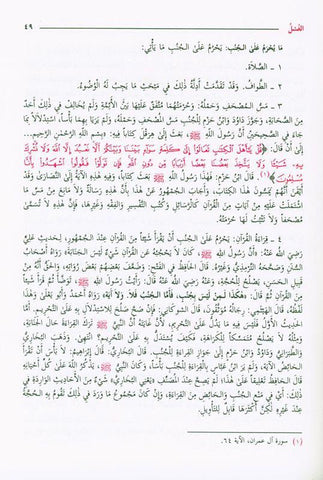 الغُسْلُ ٤٩
مَا يَحْرُمُ عَلَىٰ الجُنُبِ: يَحْرُمُ عَلَىٰ الجُنُبِ مَا يَأْتِي:
١ - الصَّلَاةُ.
٢ - الطَّوافُ. وَقَدْ تَقَدَّمَتْ أَدِلَّةُ ذٰلِكَ فِي مَبْحَثِ مَا يَجِبُ لَهُ الْوُضُوءُ.
٣ - مَسُّ المُصْحَفِ وَحَمْلُهُ: وَحُرْمَتُهُمَا مُتَّفَقٌ عَلَيْهَا بَيْنَ الأَئِمَّةِ وَلَمْ يُخَالِفْ فِي ذٰلِكَ أَحَدٌ
مِنَ الصَّحَابَةِ، وَجَوَّزَ دَاوُدُ وَابْنُ حَزْمٍ لِلْجُنُبِ مَسَّ المُصْحَفِ وَحَمْلَهُ، وَلَمْ يَرَيَا بِهِمَا بَأْساً، اسْتِدْلَالاً بِمَا
جَاءَ فِي الصَّحِيحَيْنِ أَنَّ رَسُولَ اللَّهِ ﷺ، بَعَثَ إِلَىٰ هِرَقْلَ كِتَاباً فِيهِ: «بِسْمِ اللَّهِ الرَّحْمٰنِ الرَّحِيمِ...
إِلَىٰ أَنْ قَالَ: ﴿قُلْ يَا أَهْلَ الْكِتَابِ تَعَالَوْا إِلَىٰ كَلِمَةٍ سَوَاءٍ بَيْنَنَا وَبَيْنَكُمْ أَلَّا نَعْبُدَ إِلَّا اللَّهَ وَلَا نُشْرِكَ
بِهِ شَيْئًا وَلَا يَتَّخِذَ بَعْضُنَا بَعْضًا أَرْبَابًا مِّن دُونِ اللَّهِ فَإِن تَوَلَّوْا فَقُولُوا اشْهَدُوا بِأَنَّا
مُسْلِمُونَ﴾(١). قَالَ ابْنُ حَزْمٍ: فَهٰذَا رَسُولُ اللَّهِ ﷺ، قَدْ بَعَثَ كِتَاباً فِيهِ هٰذِهِ الآيَةُ إِلَىٰ النَّصَارَىٰ وَقَدْ
أَيْقَنَ أَنَّهُمْ يَمَسُّونَ هٰذَا الْكِتَابَ، وَأَجَابَ الجُمْهُورُ عَنْ هٰذَا بِأَنَّ هٰذِهِ رِسَالَةٌ وَلَا مَانِعَ مِنْ مَسِّ مَا
اشْتَمَلَتْ عَلَيْهِ مِنْ آيَاتٍ مِنَ القُرْآنِ كَالرَّسَائِلِ وَكُتُبِ التَّفْسِيرِ وَالفِقْهِ وَغَيْرِهَا، فَإِنَّ هٰذِهِ لَا تُسَمَّىٰ
مُصْحَفاً وَلَا تَثْبُتُ لَهَا حُرْمَتُهُ.
٤ - قِرَاءَةُ القُرْآنِ: يَحْرُمُ عَلَىٰ الجُنُبِ أَنْ يَقْرَأَ شَيْئاً مِنَ القُرْآنِ عِنْدَ الجُمْهُورِ، لِحَدِيثِ عَلِيٍّ
رَضِيَ اللَّهُ عَنْهُ، أَنَّ رَسُولَ اللَّهِ ﷺ، كَانَ لَا يَحْجُبُهُ عَنِ القُرْآنِ شَيْءٌ لَيْسَ الجَنَابَةَ، رَوَاهُ أَصْحَابُ
السُّنَنِ وَصَحَّحَهُ التِّرْمِذِيُّ وَغَيْرُهُ. قَالَ الحَافِظُ فِي الفَتْحِ: وَضَعَّفَ بَعْضُهُمْ بَعْضَ رُوَاتِهِ، وَالحَقُّ أَنَّهُ مِنْ
قَبِيلِ الحَسَنِ، يَصْلُحُ لِلْحُجَّةِ، وَعَنْهُ، رَضِيَ اللَّهُ عَنْهُ، قَالَ: رَأَيْتُ رَسُولَ اللَّهِ ﷺ، تَوَضَّأَ ثُمَّ قَرَأَ شَيْئاً
مِنَ القُرْآنِ ثُمَّ قَالَ: «هٰكَذَا لِمَنْ لَيْسَ بِجُنُبٍ، فَأَمَّا الجُنُبُ فَلَا. وَلَا آيَةَ»، رَوَاهُ أَحْمَدُ وَأَبُو يَعْلَىٰ وَهٰذَا
لَفْظُهُ. قَالَ الهَيْثَمِيُّ: رِجَالُهُ مُوَثَّقُونَ، قَالَ الشَّوْكَانِيُّ: فَإِنْ صَحَّ صَلُحَ لِلاسْتِدْلَالِ بِهِ عَلَىٰ التَّحْرِيمِ. أَمَّا
الحَدِيثُ الأَوَّلُ فَلَيْسَ فِيهِ مَا يَدُلُّ عَلَىٰ التَّحْرِيمِ، لِأَنَّ غَايَتَهُ أَنَّ النَّبِيَّ ﷺ تَرَكَ القِرَاءَةَ حَالَ الجَنَابَةِ،
وَمِثْلُهُ لَا يَصْلُحُ مُتَمَسَّكاً لِلْكَرَاهَةِ، فَكَيْفَ يُسْتَدَلُّ بِهِ عَلَىٰ التَّحْرِيمِ؟ انْتَهَىٰ. وَذَهَبَ البُخَارِيُّ
وَالطَّبَرَانِيُّ وَدَاوُدُ وَابْنُ حَزْمٍ إِلَىٰ جَوَازِ القِرَاءَةِ لِلْجُنُبِ. قَالَ البُخَارِيُّ: قَالَ إِبْرَاهِيمُ: لَا بَأْسَ أَنْ تَقْرَأَ
الحَائِضُ الآيَةَ، وَلَمْ يَرَ ابْنُ عَبَّاسٍ بِالْقِرَاءَةِ لِلْجُنُبِ بَأْساً، وَكَانَ النَّبِيُّ ﷺ، يَذْكُرُ اللَّهَ عَلَىٰ كُلِّ أَحْيَانِهِ
قَالَ الحَافِظُ تَعْلِيقاً عَلَىٰ هٰذَا، لَمْ يَصِحَّ عِنْدَ المُصَنِّفِ «يَعْنِي البُخَارِيَّ» شَيْءٌ مِنَ الأَحَادِيثِ الوَارِدَةِ فِي
ذٰلِكَ: أَيْ فِي مَنْعِ الجُنُبِ وَالحَائِضِ مِنَ القِرَاءَةِ، وَإِنْ كَانَ مَجْمُوعُ مَا وَرَدَ فِي ذٰلِكَ تَقُومُ بِهِ الحُجَّةُ
عِنْدَ غَيْرِهِ لٰكِنَّ أَكْثَرَهَا قَابِلٌ لِلتَّأْوِيلِ.
(١) سورة آل عمران، الآية ٦٤.